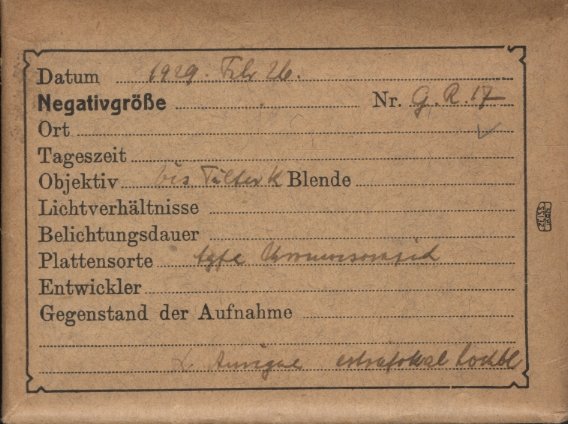 Datum 1929. Febr 26.
Negativgröße Nr. G. R. 17
Ort
Tageszeit
Objektiv Blende
Lichtverhältnisse
Belichtungsdauer
Plattensorte
Entwickler
Gegenstand der Aufnahme
Aurigae extrafokal